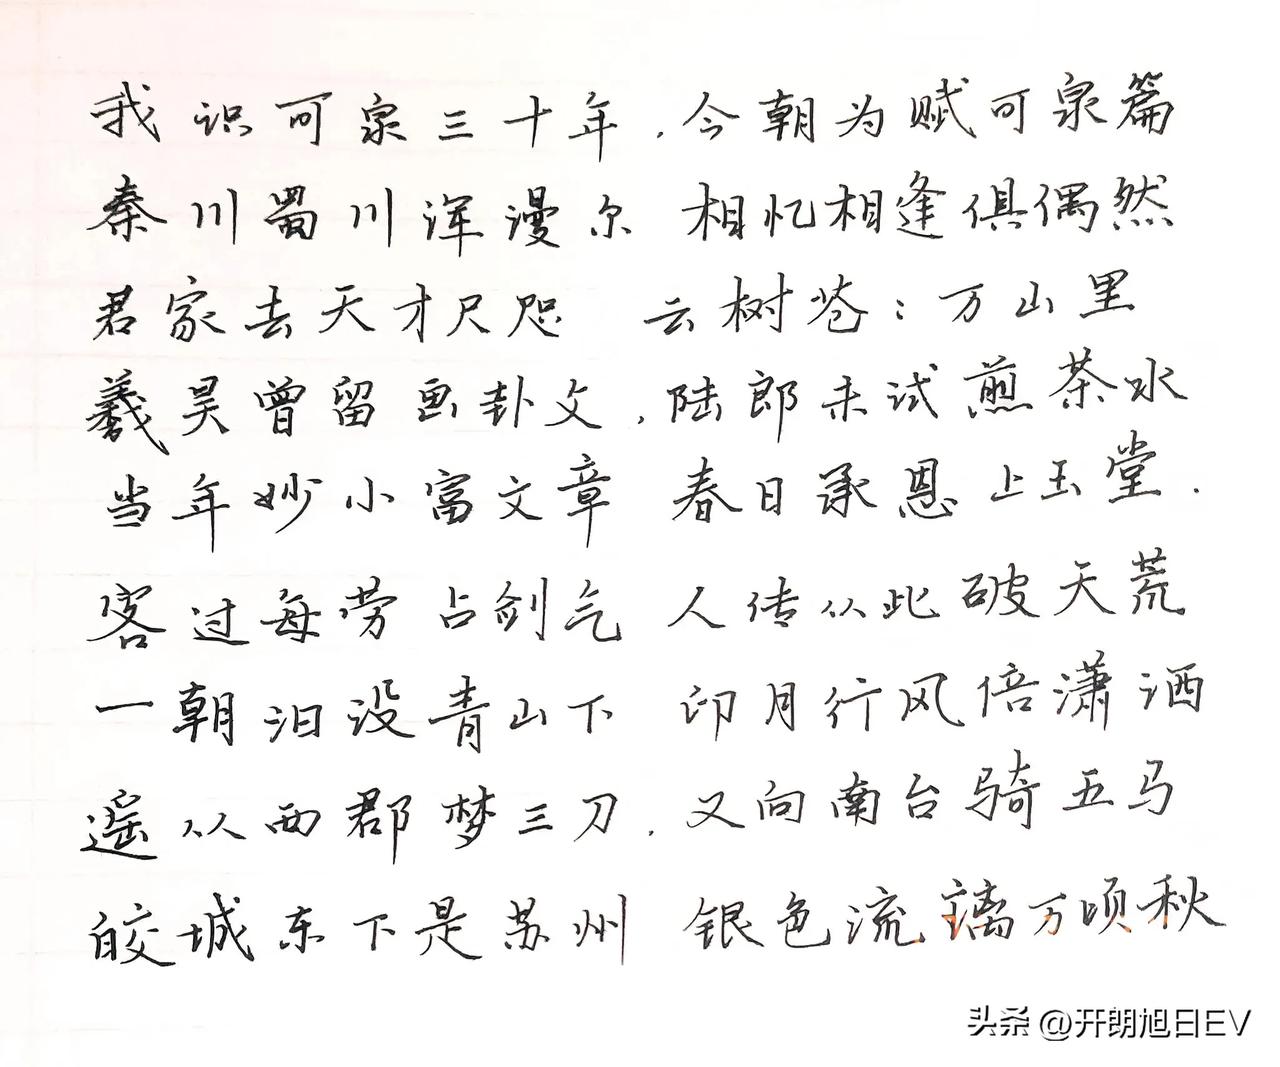 我识可泉三十年．今朝为赋可泉篇
秦川蜀川浑漫尔 相忆相逢俱偶然
君家去天才尺咫 云树苍：万山里
羲昊曾留画卦文．陆郎未试煎茶水
当年妙小富文章 春日承恩上玉堂．
客过每劳占剑气 人传从此破天荒
一朝汩没青山下 印月行风倍潇洒
遥从西郡梦三刀．又向南台骑五马
皎城东下是苏州 银色流璃万顷秋
头条 @开朗旭日EV